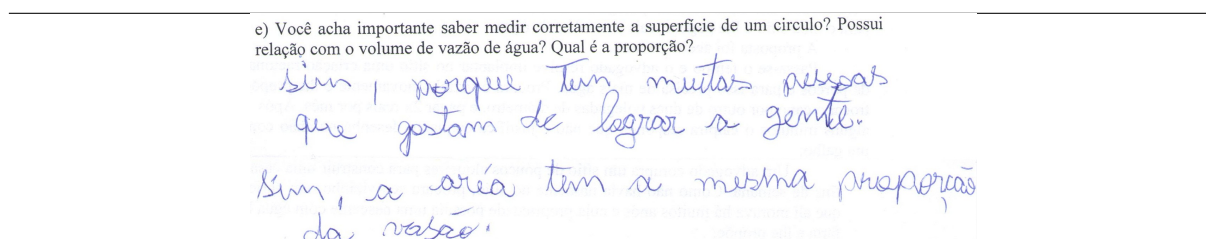 e) Você acha importante saber medir corretamente a superfície de um circulo? Possui
relação com o volume de vazão de água? Qual é a proporção?
sim, porque tem muitas pessoas
que gostam de lograr a gente.
Sim, a aréa tem a mesma proporção
da vasão.